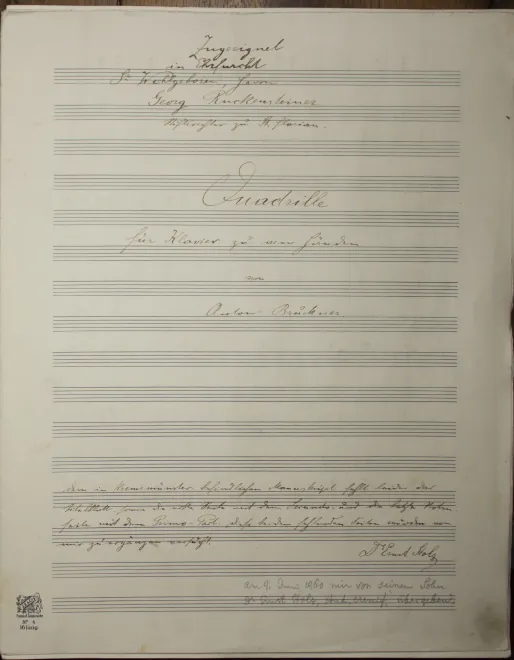 Zugeeignet
in Ehrfurcht
Sr Wohlgeboren, Herrn
Georg Ruckensteiner
Stiftsrichter zu St. Florian.
Quadrille
für Klavier zu vier Händen
von
Anton Bruckner
Dem in Kremsmünster befindlichen Manuskript fehlt leider das
Titelblatt, die erste Seite mit dem Secundo- und die letzte Noten
seite mit dem Primo-Teil, diese beiden fehlenden Seiten wurden von
mir zu ergänzen versucht.
Dr Ernst
1960 mir von seinem Sohn
Dr Ernst übergeben.
No 4